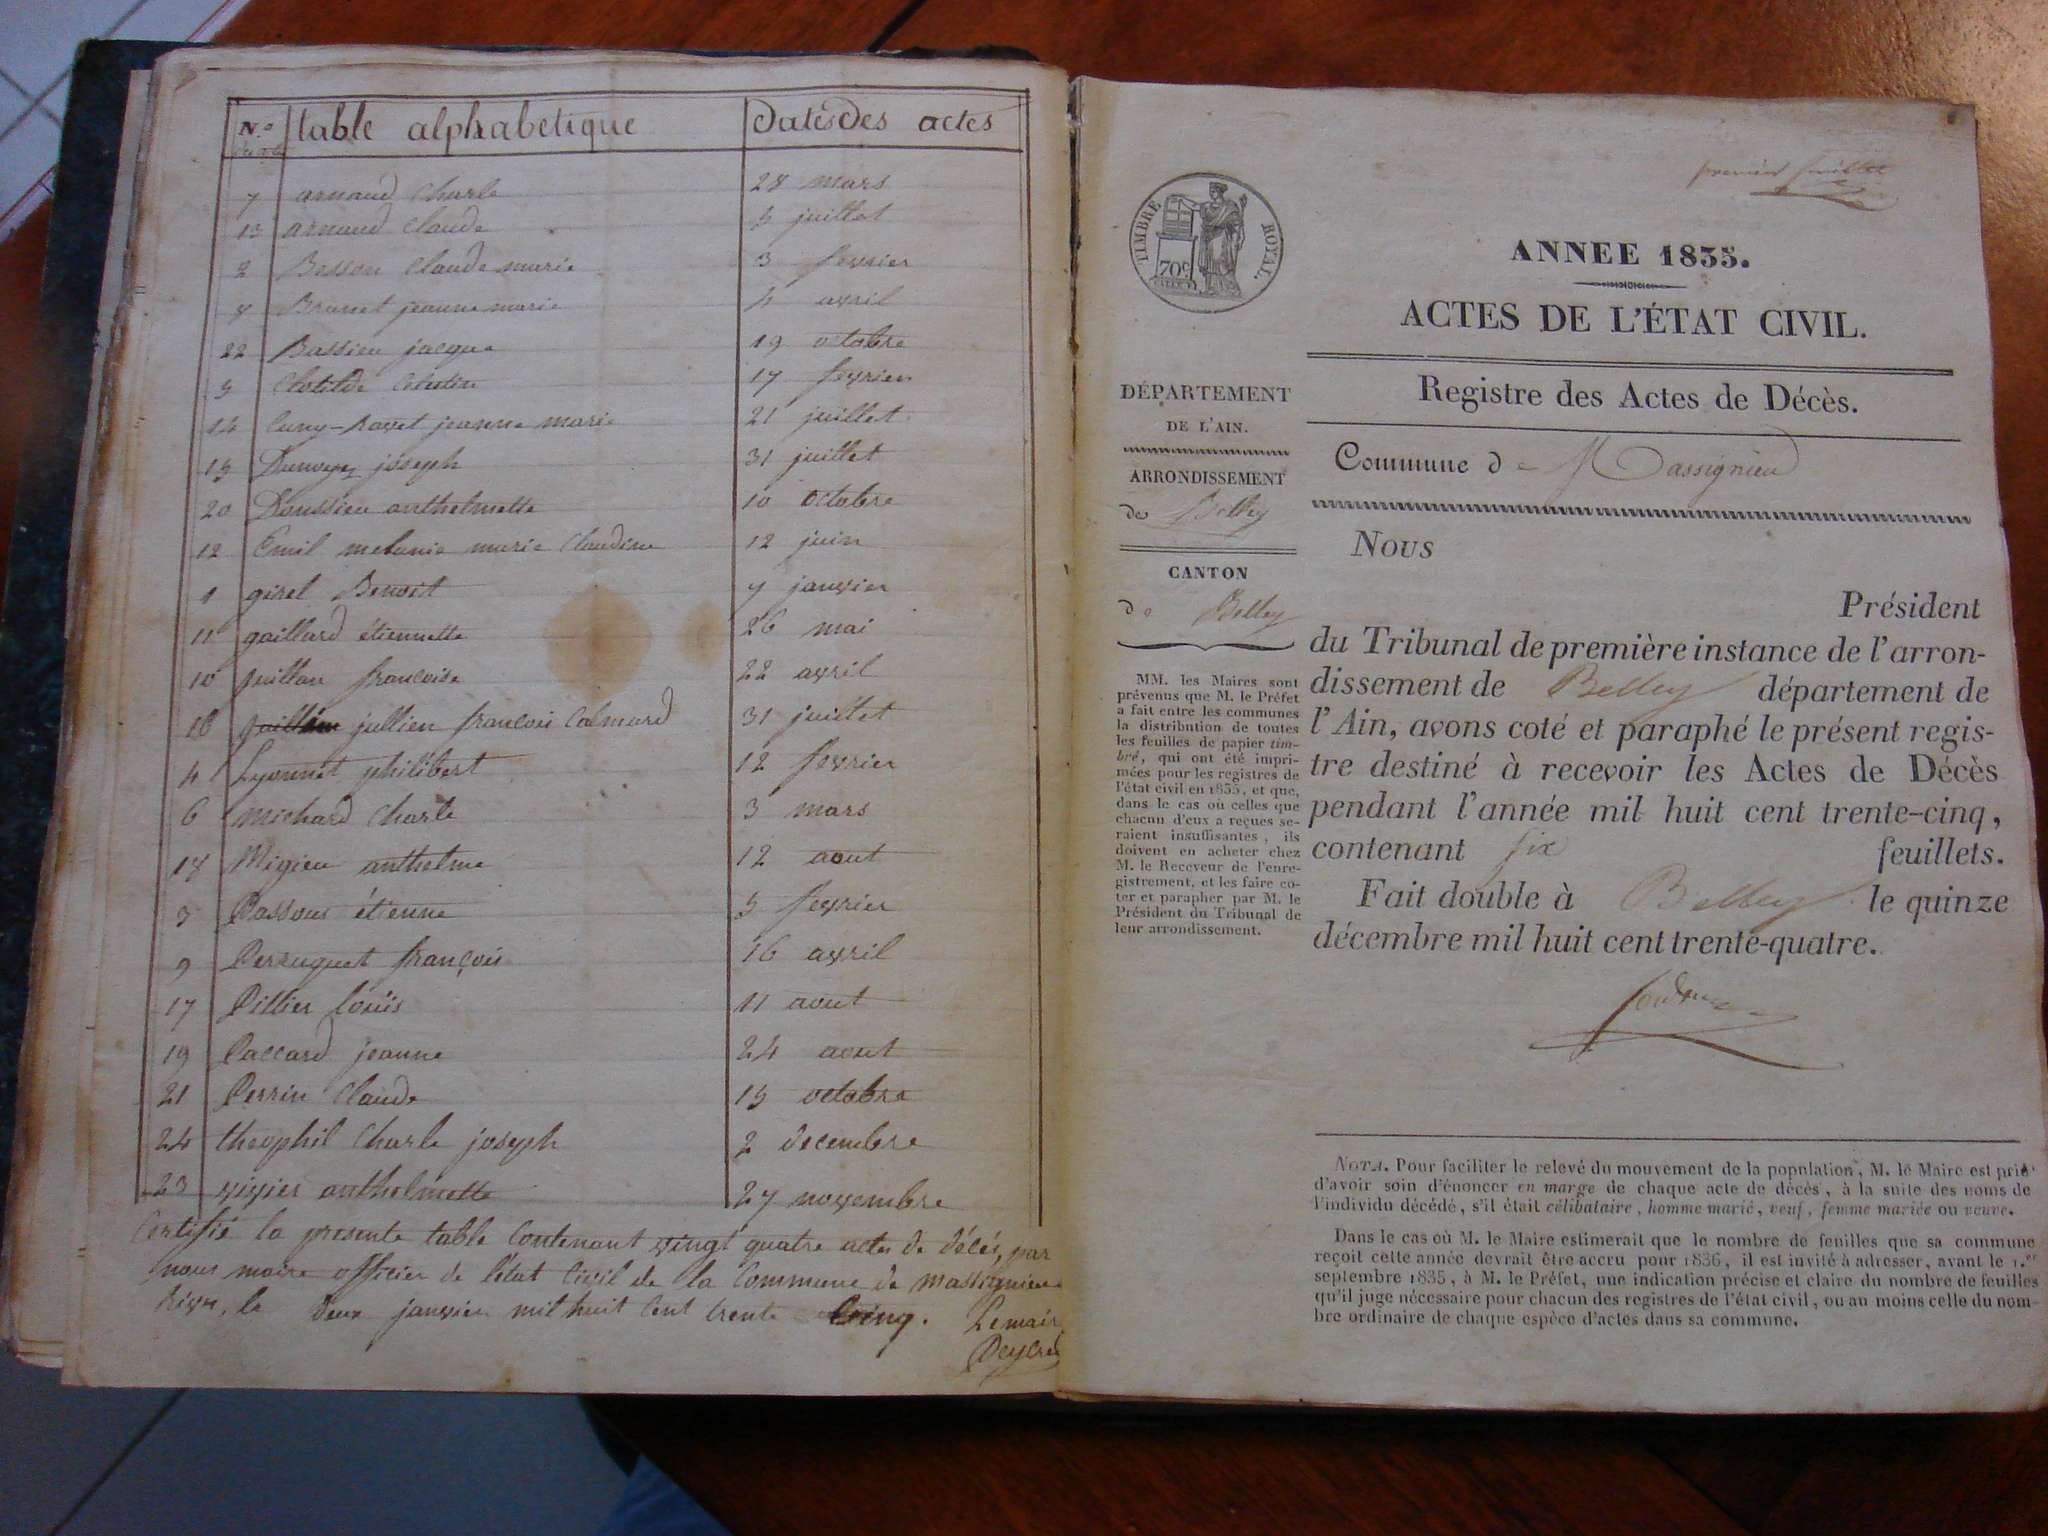 N.o table alphabetique Dates Des actes
7 arnaud Charle 28 mars
13 arnaud Claude 5 juillet
2 Besson Claude marie 3 fevrier
8 Brunet jeanne marie 4 avril
22 Bassieu jacque 19 octobre
5 Clotilde Celestin 17 fevrier
14 Cuny-Ravet jeanne marie 21 juillet
15 joseph 31 juillet
20 Doussieu anthelmette 10 octobre
12 Emil melanie marie Claudine 12 juin
1 girel Benoit 7 janvier
11 gaillard étiennette 26 mai
10 françoise 22 avril
16 jullien françois Calmard 31 juillet
4 Lyonnet philibert 12 fevrier
6 michard Charle 3 mars
18 Migieu anthelme 12 aout
3 Passous étienne 5 fevrier
9 Perruquet françois 16 avril
17 Pillier Louis 11 aout
19 Paccard jeanne 24 aout
21 Perrin Claude 15 octobre
24 théophil Charle joseph 2 decembre
23 vivier anthelmette 27 novembre
Certifié la presente table Contenant vingt quatre actes de décés, par
nous maire officier de l'état Civil de la Commune de massignieu
Rive, le Deux janvier mil huit Cent trente Cinq. Le mair
premier feuillet
TIMBRE ROYAL.
70 c.
ANNEE 1835.
ACTES DE L'ÉTAT CIVIL.
Registre des Actes de Décès.
Commune de Massignieu
DÉPARTEMENT
DE L'AIN.
ARRONDISSEMENT
de Belley
CANTON
de Belley
MM. les Maires sont
prévenus que M. le Préfet
a fait entre les communes
la distribution de toutes
les feuilles de papier tim-
bré, qui ont été impri-
mées pour les registres de
l'état civil en 1835, et que,
dans le cas où celles que
chacun d'eux a reçues se-
raient insuffisantes, ils
doivent en acheter chez
M. le Receveur de l'enre-
gistrement, et les faire co-
ter et parapher par M. le
Président du Tribunal de
leur arrondissement.
Nous
Président
du Tribunal de première instance de l'arron-
dissement de Belley département de
l'Ain, avons coté et paraphé le présent regis-
tre destiné à recevoir les Actes de Décès
pendant l'année mil huit cent trente-cinq,
contenant six feuillets.
Fait double à Belley le quinze
décembre mil huit cent trente-quatre.
NOTA. Pour faciliter le relevé du mouvement de la population, M. le Maire est prié
d'avoir soin d'énoncer en marge de chaque acte de décès, à la suite des noms de
l'individu décédé, s'il était célibataire, homme marié, veuf, femme mariée ou veuve.
Dans le cas où M. le Maire estimerait que le nombre de feuilles que sa commune
reçoit cette année devrait être accru pour 1836, il est invité à adresser, avant le 1.er
septembre 1835, à M. le Préfet, une indication précise et claire du nombre de feuilles
qu'il juge nécessaire pour chacun des registres de l'état civil, ou au moins celle du nom-
bre ordinaire de chaque espèce d'actes dans sa commune.